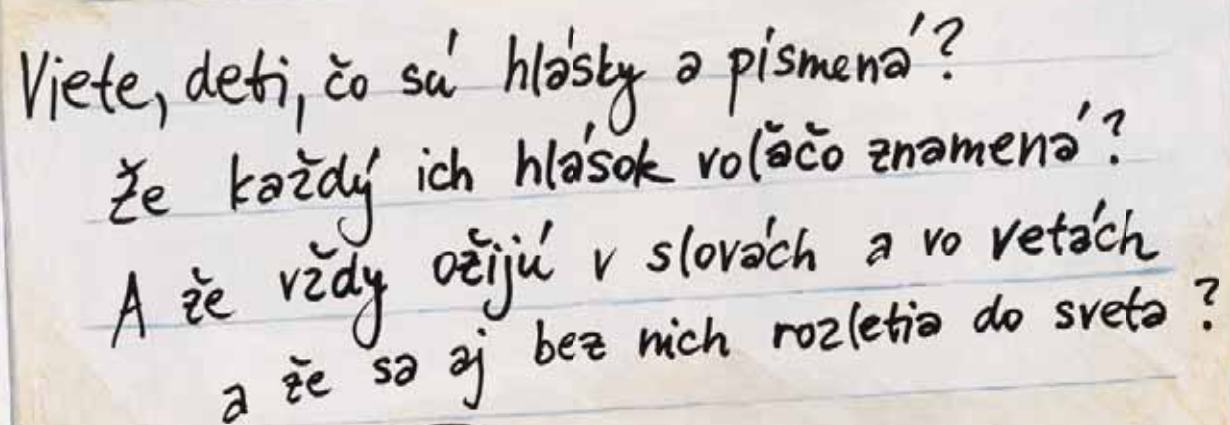 Viete, deti, čo sú hlásky a písmená?
Že každý ich hlások voľačo znamená?
A že vždy ožijú v slovách a vo vetách
a že sa aj bez nich rozletia do sveta?